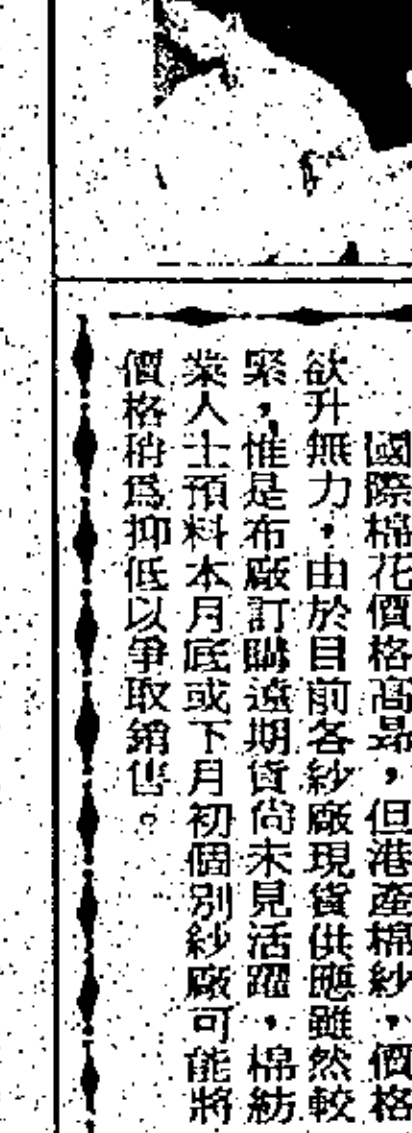 國際棉花價格高昻，但港產棉紗，價格
欲升無力，由於目前各紗廠現貨供應雖然較
緊，惟是布廠訂購遠期貨尚未見活躍，棉紡
業人士預料本月底或下月初個別紗廠可能將
價格稍爲抑低以爭取銷售。